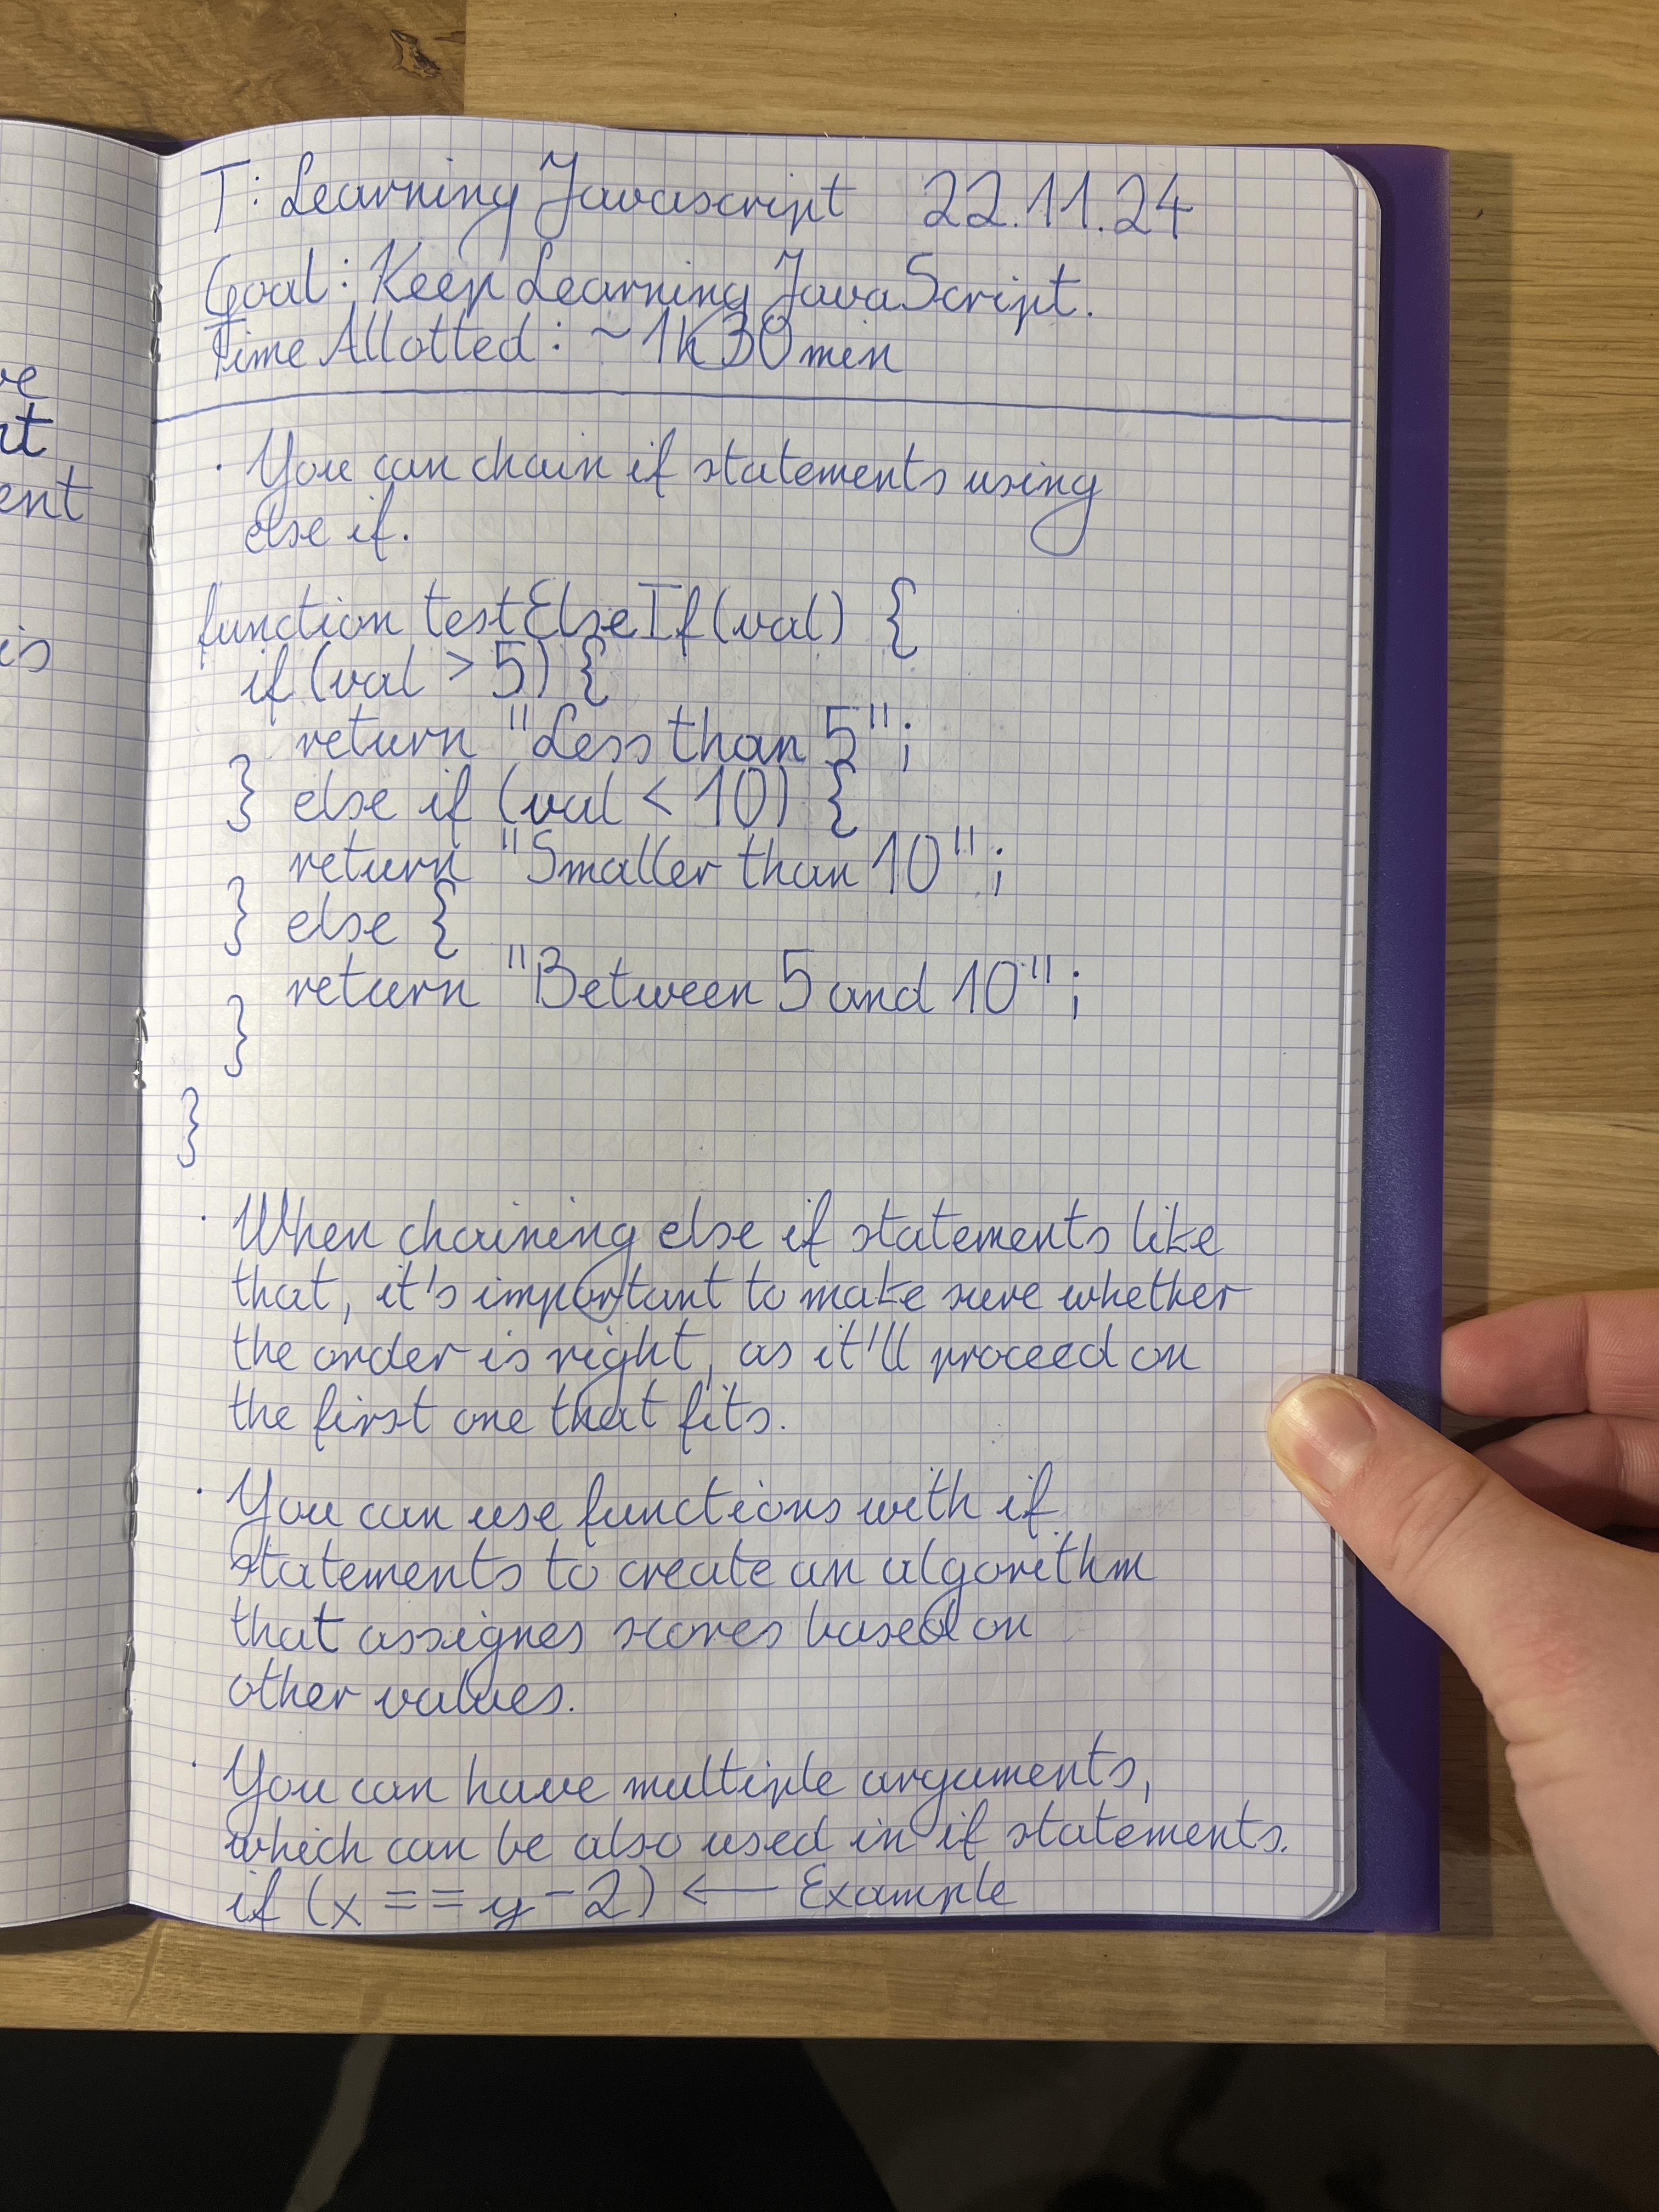 ve
nt
ent
is
T: Learning Javascript 22.11.24
Goal: Keep Learning JavaScript.
Time Allotted: ~1h30min
· You can chain if statements using
else if.
function testElseIf(val) {
if (val > 5) {
return "Less than 5";
} else if (val < 10) {
return "Smaller than 10";
} else {
return "Between 5 and 10";
}
}
· When chaining else if statements like
that, it's important to make sure whether
the order is right, as it'll proceed on
the first one that fits.
· You can use functions with if
statements to create an algorithm
that assignes scores based on
other values.
· You can have multiple arguments,
which can be also used in if statements.
if (x == y - 2) ← Example